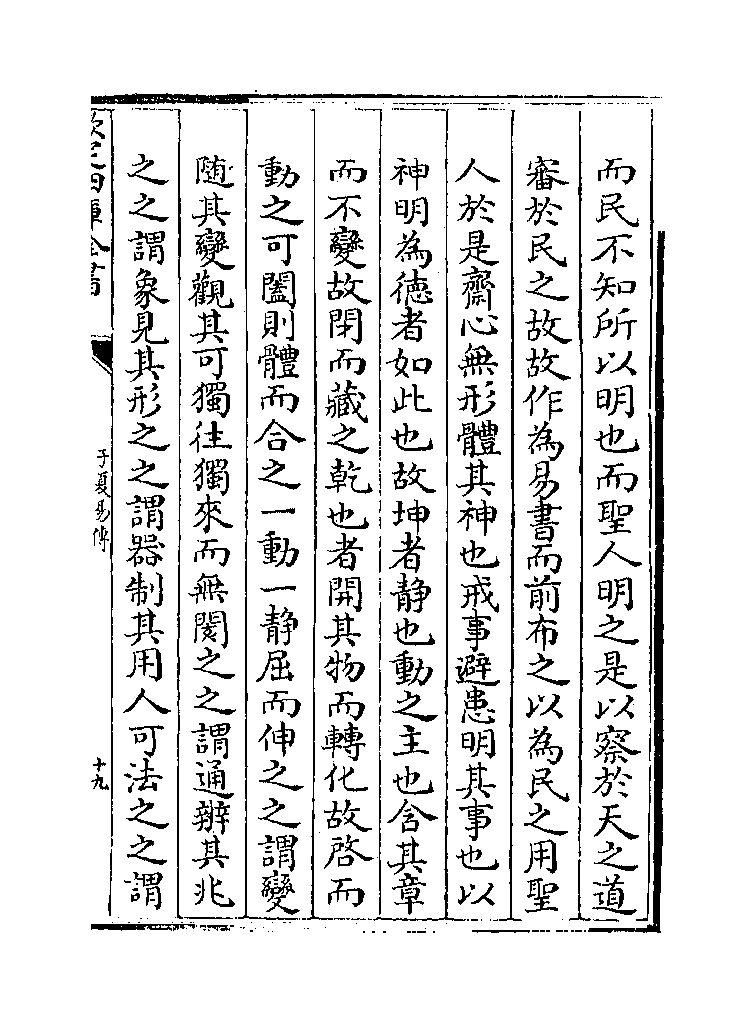 而民不知所以明也而聖人明之是以察於天之道
審於民之故故作為易書而前布之以為民之用聖
人於是齋心無形體其神也戒事避患明其事也以
神明為德者如此也故坤者静也動之主也含其章
而不變故閉而藏之乾也者開其物而轉化故啓而
動之可闔則體而合之一動一静屈而伸之之謂變
随其變觀其可獨往獨來而無閡之之謂通辨其兆
之之謂象見其形之之謂器制其用人可法之之謂
欽定四庫全書
子夏易傳
十九